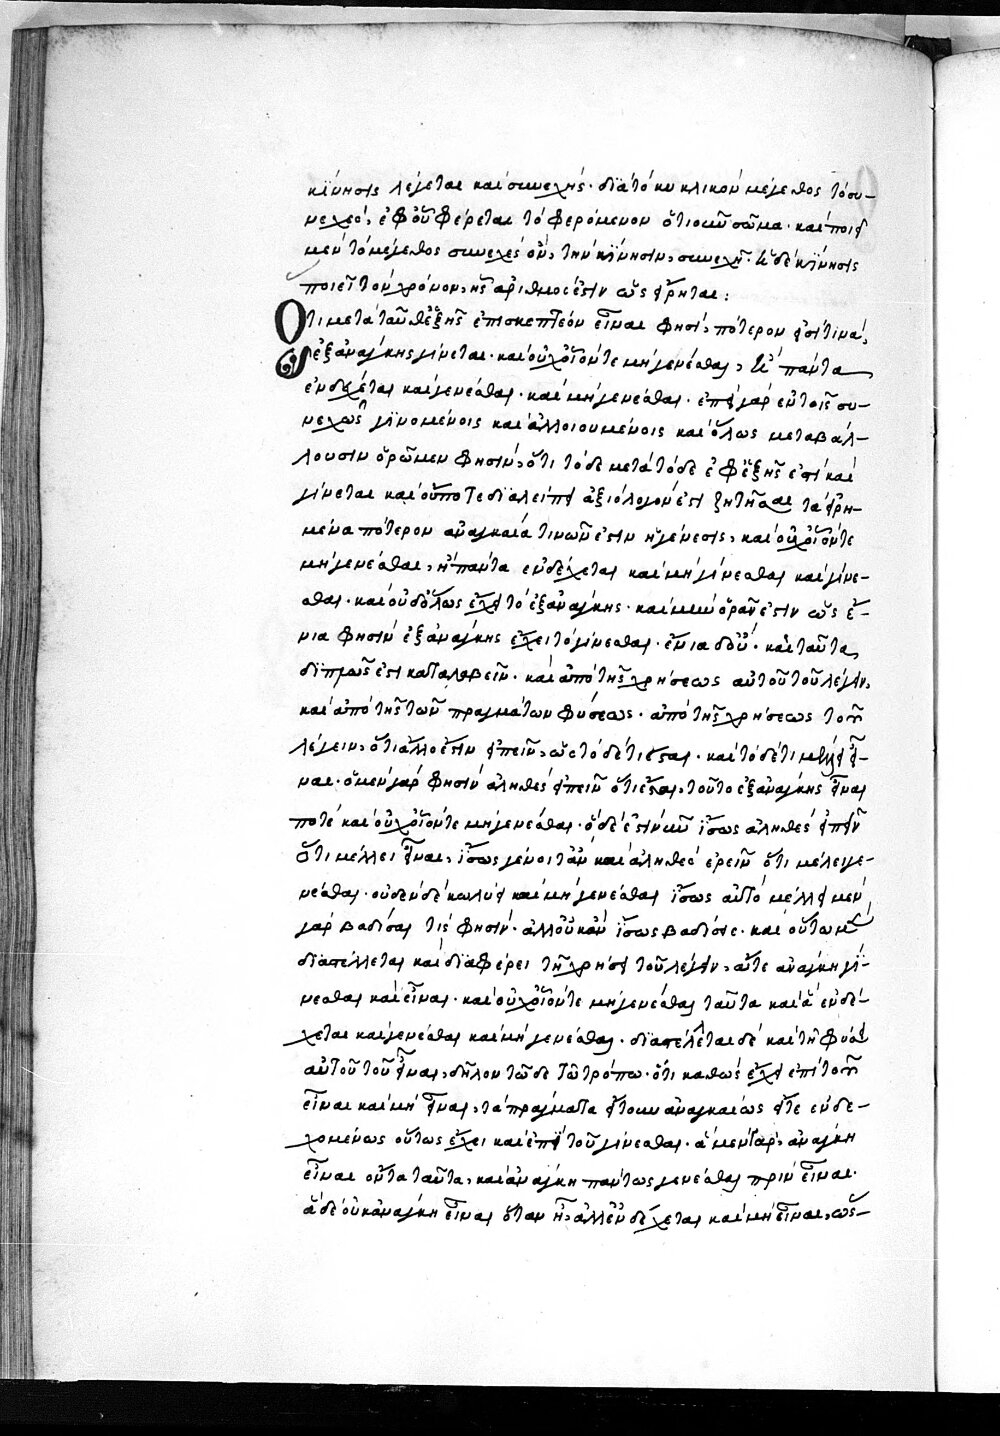 κίνησις λέγεται καὶ συνεχής· διὰ τὸ κυκλικὸν μέγεθος τὸ συ-
νεχὲς, ἐφ' οὗ φέρεται τὸ φερόμενον ὁτιοῦν σῶμα· καὶ ποιεῖ
μὲν τὸ μέγεθος συνεχὲς ὂν, τὴν κίνησιν, συνεχῆ· ἡ δὲ κίνησις
ποιεῖ τὸν χρόνον, ἧς ἀριθμός ἐστιν ὡς εἴρηται:
Ὅτι μετὰ ταῦθ' ἑξῆς ἐπισκεπτέον εἶναι φησὶ, πότερον ἐστί τινὰ,
ἃ ἐξ ἀνάγκης γίνεται· καὶ οὐχ οἷόν τε μὴ γενέσθαι, ἢ πάντα
ἐνδέχεται καὶ γενέσθαι· καὶ μὴ γενέσθαι· ἐπεὶ γὰρ ἐν τοῖς συ-
νεχῶς γινομένοις καὶ ἀλλοιουμένοις καὶ ὅλως μεταβάλ-
λουσιν ὁρῶμεν φησὶν, ὅτι τόδε μετὰ τόδε ἐφεξῆς ἐστὶ καὶ
γίνεται καὶ οὔποτε διαλείπει ἀξιόλογόν ἐστι ζητῆσαι τὰ εἰρη-
μένα πότερον ἀναγκαία τινῶν ἐστιν ἡ γένεσις, καὶ οὐχ οἷόν τε
μὴ γενέσθαι, ἢ πάντα ἐνδέχεται καὶ μὴ γίνεσθαι καὶ γίνε-
σθαι· καὶ οὐδόλως ἔχει τὸ ἐξ ἀνάγκης· καὶ μὴν ὁρᾶν ἐστιν ὡς ἔ-
νια φησὶν ἐξ ἀνάγκης ἔχει τὸ γίνεσθαι· ἔνια δ' οὔ· καὶ ταῦτα
διττῶς ἐστι καταλαβεῖν· καὶ ἀπὸ τῆς χρήσεως αὐτοῦ τοῦ λέγειν,
καὶ ἀπὸ τῆς τῶν πραγμάτων φύσεως· ἀπὸ τῆς χρήσεως τοῦ
λέγειν, ὅτι ἄλλο ἐστὶν εἰπεῖν, ὡς τόδέ τι ἔσται· καὶ τόδέ τι μέλλει εἶ-
ναι· ὃ μὲν γὰρ φησὶν ἀληθὲς εἰπεῖν ὅτι ἔσται, τοῦτο ἐξ ἀνάγκης εἶναι
ποτὲ καὶ οὐχ οἷόν τε μὴ γενέσθαι· ὃ δέ ἐστι νῦν ἴσως ἀληθὲς εἰπεῖν
ὅτι μέλλει εἶναι, ἴσως γένοιτ' ἂν καὶ ἀληθὲς ἐρεῖν ὅτι μέλει γε-
νέσθαι· οὐδὲν δὲ κωλύει καὶ μὴ γενέσθαι ἴσως αὐτό· μέλλει μὲν
γὰρ βαδίσαι τίς φησὶν· ἀλλ' οὐκ ἂν ἴσως βαδίσῃ· καὶ οὕτω μὲν
διαστέλλεται καὶ διαφέρει τῇ χρήσει τοῦ λέγειν, ἅτε ἀνάγκη γί-
νεσθαι καὶ εἶναι· καὶ οὐχ οἷόν τε μὴ γενέσθαι ταῦτα καὶ ἃ ἐνδέ-
χεται καὶ γενέσθαι καὶ μὴ γενέσθαι· διαστέλλεται δὲ καὶ τῇ φύσει
αὐτοῦ τοῦ εἶναι, δῆλον τῷδε τῷ τρόπῳ· ὅτι καθὼς ἔχει ἐπὶ τοῦ
εἶναι καὶ μὴ εἶναι, τὰ πράγματα εἴτουν ἀναγκαίως εἴτε ἐνδε-
χομένως οὕτως ἔχει καὶ ἐπὶ τοῦ γίνεσθαι· ἃ μὲν γὰρ, ἀνάγκη
εἶναι ὄντα ταῦτα, καὶ ἀνάγκη πάντως γενέσθαι πρὶν εἶναι·
ἃ δὲ οὐκ ἀνάγκη εἶναι ὅταν ᾖ, ἀλλ' ἐνδέχεται καὶ μὴ εἶναι, ὡς-